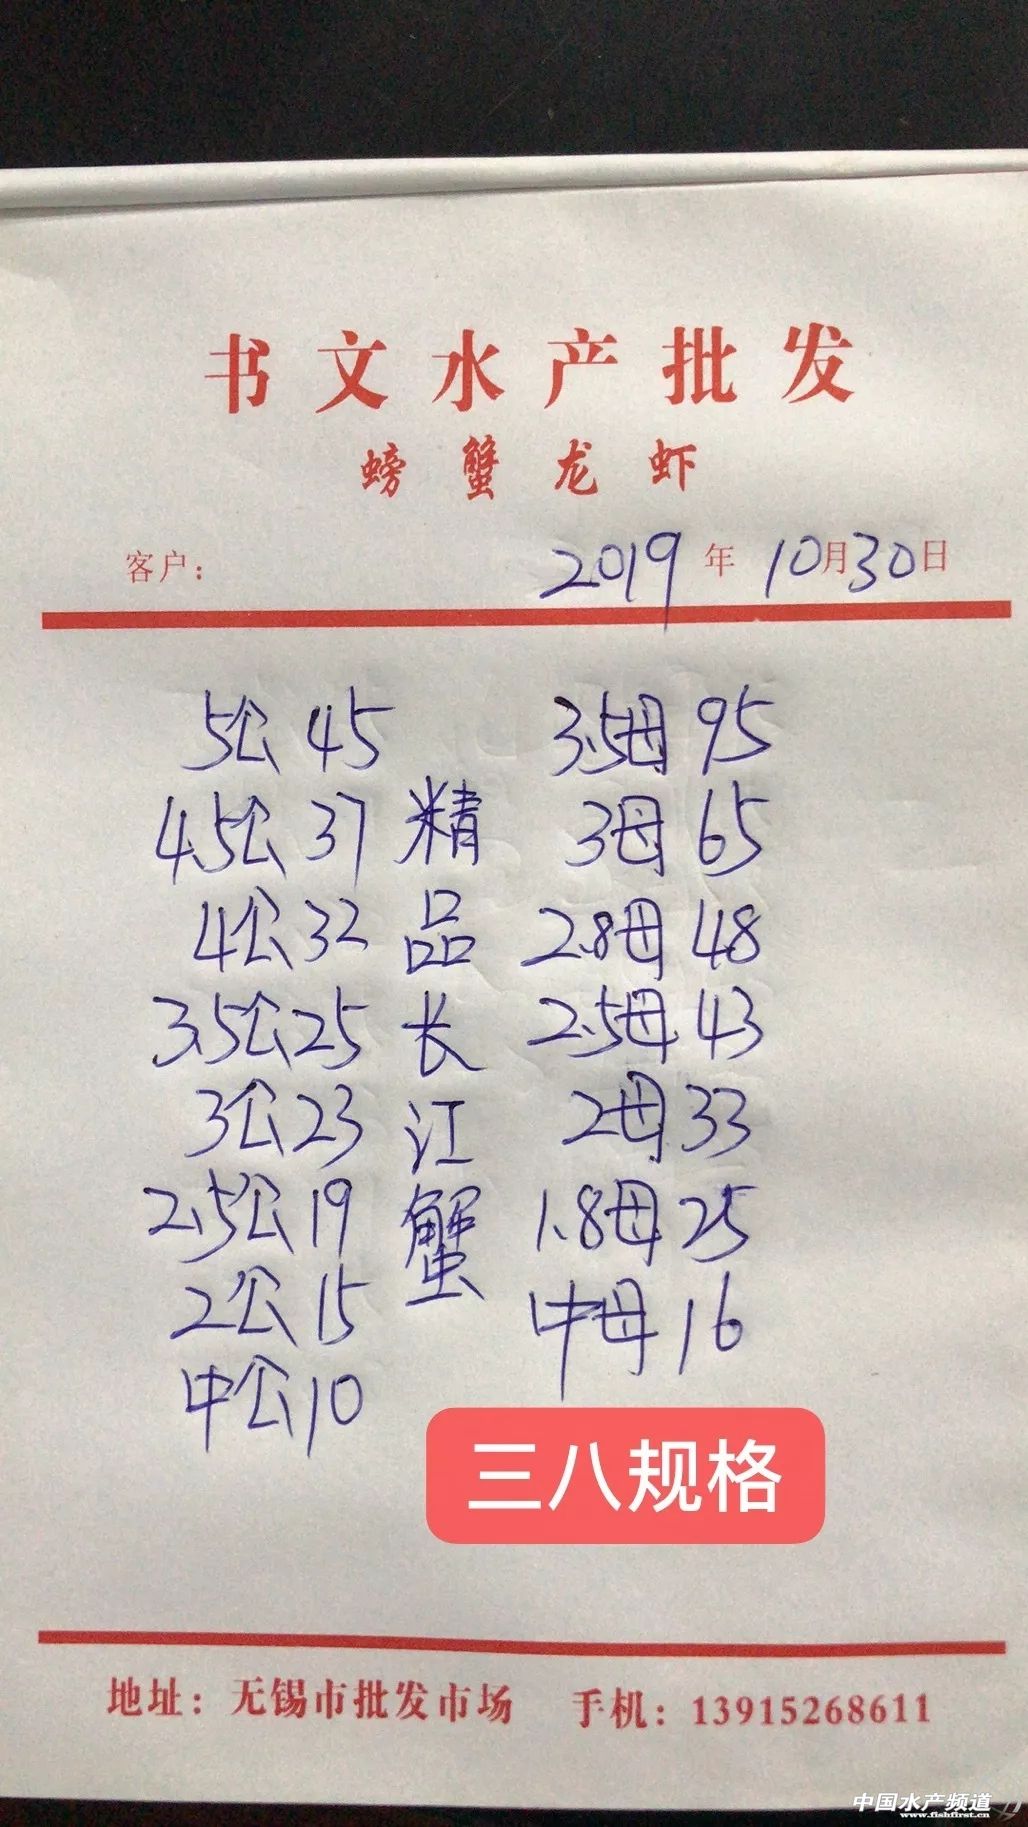 书文水产批发
螃蟹龙虾
客户： 2019年10月30日
5公 45 3.5母 95
4.5公 37 精 3母 65
4公 32 品 2.8母 48
3.5公 25 长 2.5母 43
3公 23 江 2母 33
2.5公 19 蟹 1.8母 25
2公 15 中母 16
中公 10
三八规格
地址：无锡市批发市场 手机：13915268611
中国水产频道
www.fishfirst.cn